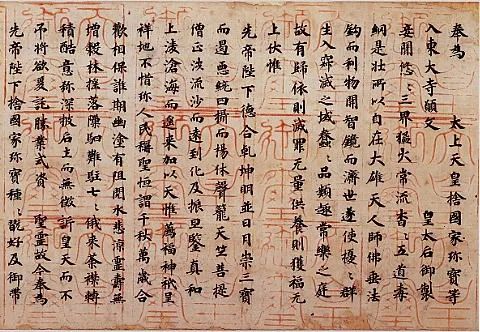 奉為　太上天皇捨國家珎寶等
入東大寺願文　皇太后御製
妾聞悠々三界猛火常流杳々五道毒
網是壯所以自在大雄天人師佛垂法
鈎而利物開智鏡而濟世遂使擾々群
生入寂滅之域蠢々品類趣常樂之庭
故有歸依則滅罪无量供養則獲福无
上伏惟
先帝陛下德合乾坤明並日月崇三寶
而遏惡統四攝而揚休聲籠天竺菩提
僧正涉流沙而遠到化及振旦鑒真和
上凌滄海而遥來加以天惟薦福神祇呈
祥地不惜珎人民稱聖恒謂千秋萬歲合
歡相保誰期幽塗有阻閱水悲涼靈壽無
增穀林搖落隙駟難駐七々俄來荼襟轉
積酷意弥深披后土而無徵訴皇天而不
弔將欲爰託勝業式資　聖靈故今奉為
先帝陛下捨國家珎寶種々翫好及御帶